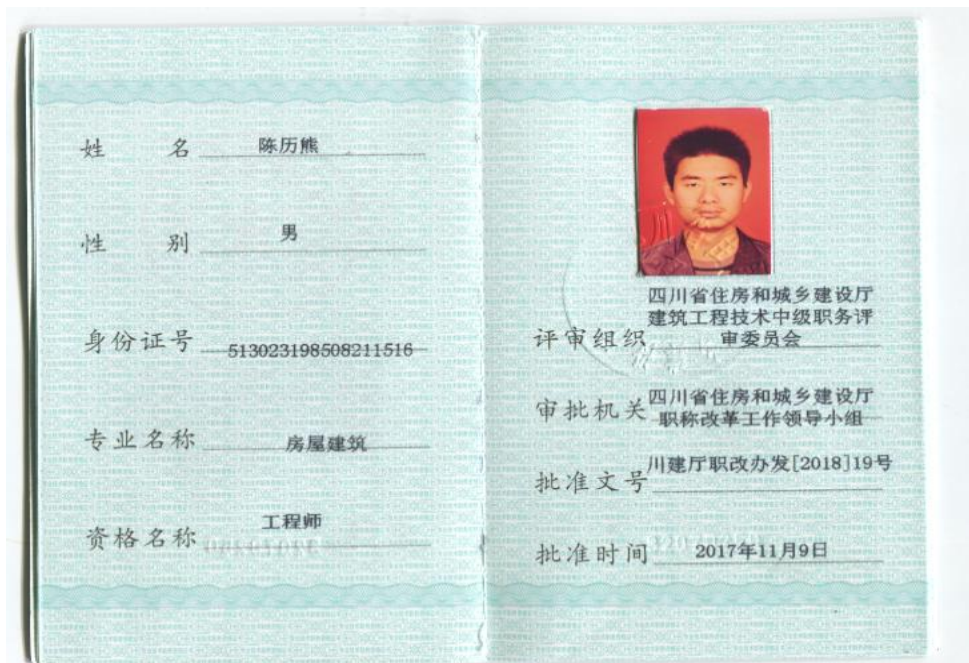 姓名 陈历熊
性别 男
身份证号 513023198508211516
专业名称 房屋建筑
资格名称 工程师
四川省住房和城乡建设厅
建筑工程技术中级职务评
评审组织 审委员会
四川省住房和城乡建设厅
审批机关 职称改革工作领导小组
批准文号 川建厅职改办发[2018]19号
批准时间 2017年11月9日